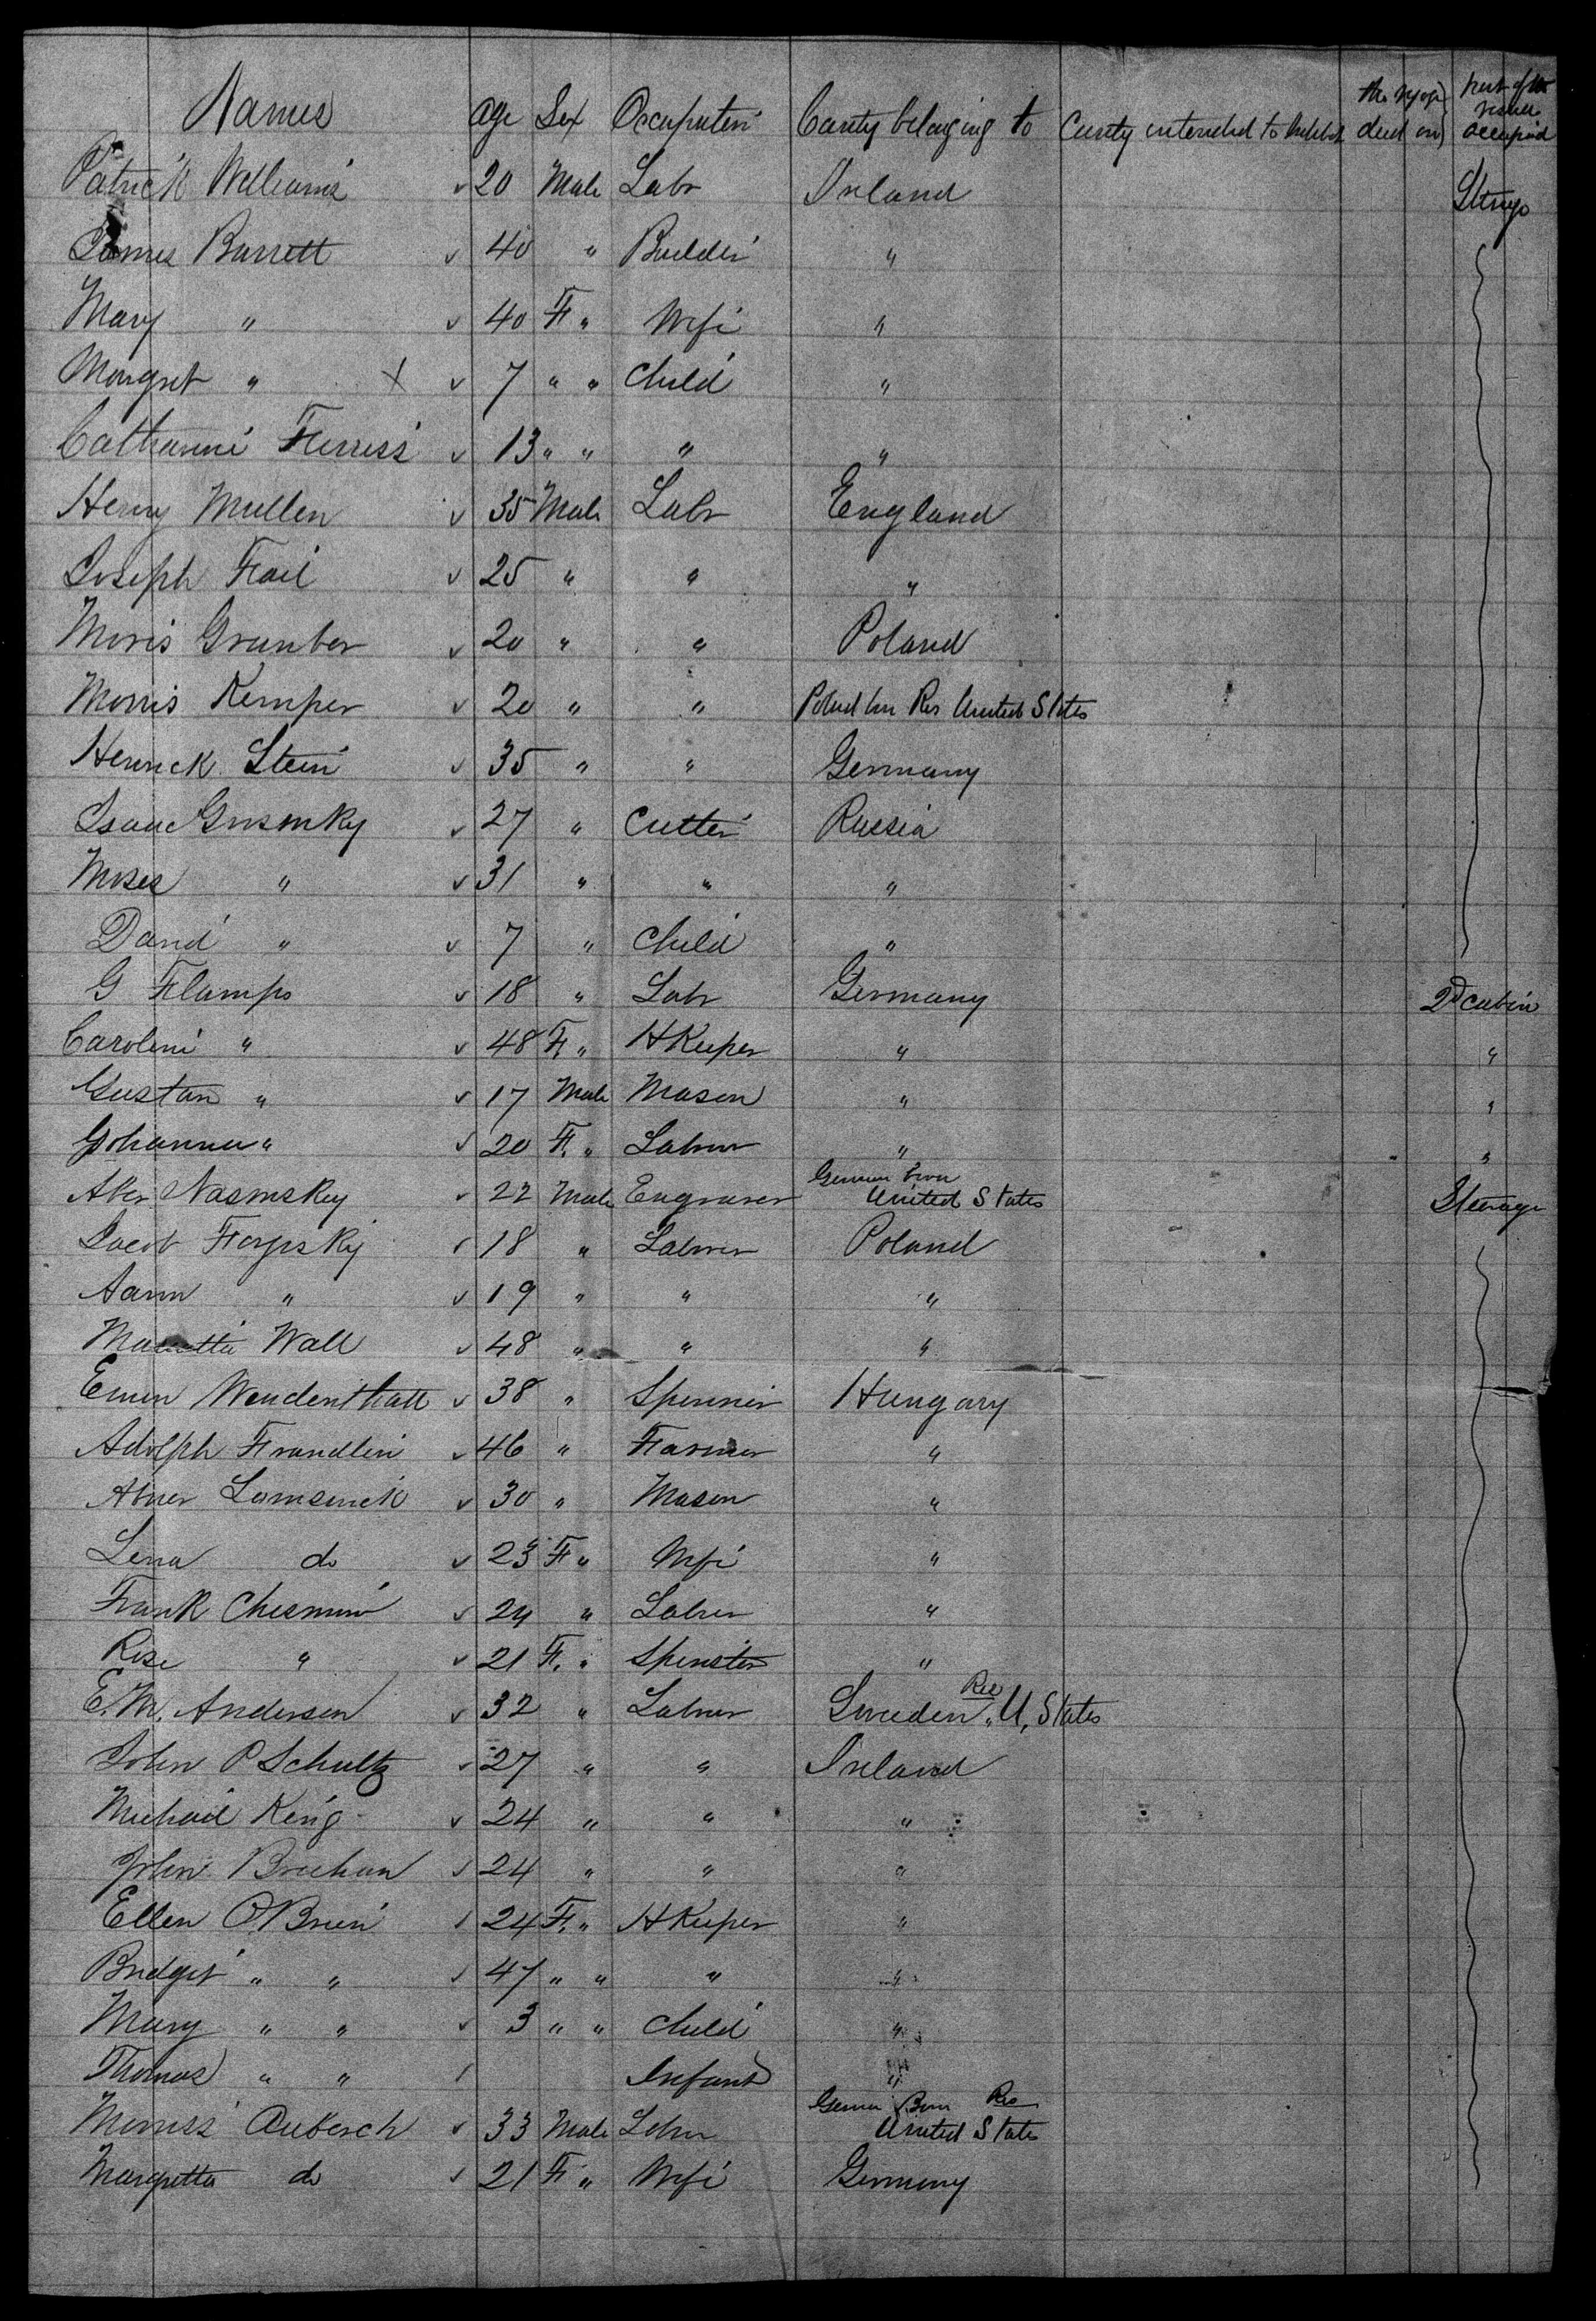 Names Age Sex Occupation County belonging to County intended to Inhabit died on part of the vessel occupied
Patrick Williams ✓ 20 Male Labr Ireland Sterage
James Barrett ✓ 40 " Builder "
Mary " ✓ 40 F " Wife "
Margret " X ✓ 7 " " Child "
Catharine Ferriss ✓ 13 " " " "
Henry Mullen ✓ 35 Male Labr England
Joseph Fail ✓ 25 " " "
Moris Grunber ✓ 20 " " Poland
Morris Kemper ✓ 20 " " Res United States
Stein ✓ 35 " " Germany
Isaac ✓ 27 " Cutter Russia
Moses " ✓ 31 " " "
David " ✓ 7 " Child "
G Flamps ✓ 18 " Labr Germany 2d cabin
Caroline " ✓ 48 F " HKeeper " "
Gustav " ✓ 17 Male Mason " "
Johanna " ✓ 20 F. " Labrer " "
German born
Nasmskey ✓ 22 Male Engraver United States Steerage
Jacob ✓ 18 " Labrer Poland
Aaron " ✓ 19 " " "
Wall ✓ 48 " " "
Wendenthall ✓ 38 " Spinner Hungary
Adolph Frandlin ✓ 46 " Farmer "
Abner ✓ 30 " Mason "
Lena do ✓ 23 F " Wife "
Frank ✓ 24 " Labrer "
Rose " ✓ 21 F. " Spinster "
E. M. Anderson ✓ 32 " Labrer Sweden Res U, States
John P Schultz ✓ 27 " " Ireland
Michael King ✓ 24 " " "
John ✓ 24 " " "
Ellen O.Brien ✓ 24 F. " HKeeper "
Bridget " " ✓ 47 " " " "
Mary " " ✓ 3 " " child "
Thomas " " ✓ Infant "
Born Res
Morriss ✓ 33 Male Labr United States
Margretta do ✓ 21 F " Wife Germany